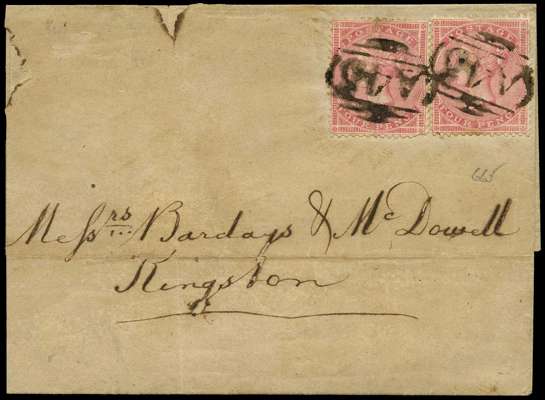 POSTAGE POSTAGE
FOUR PENCE FOUR PENCE
Messrs Barclays & McDowell
Kingston